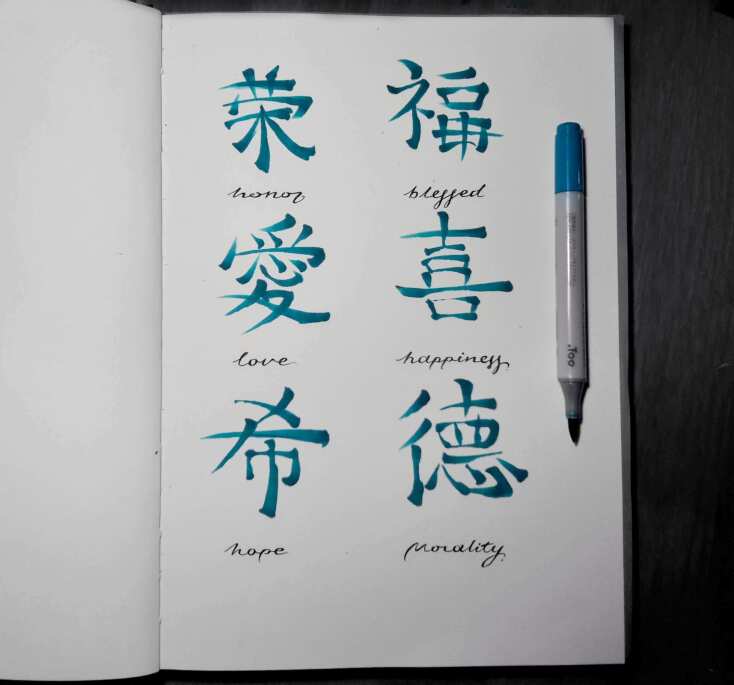 荣 福
honor blessed
愛 喜
love happiness
希 德
hope Morality
.Too